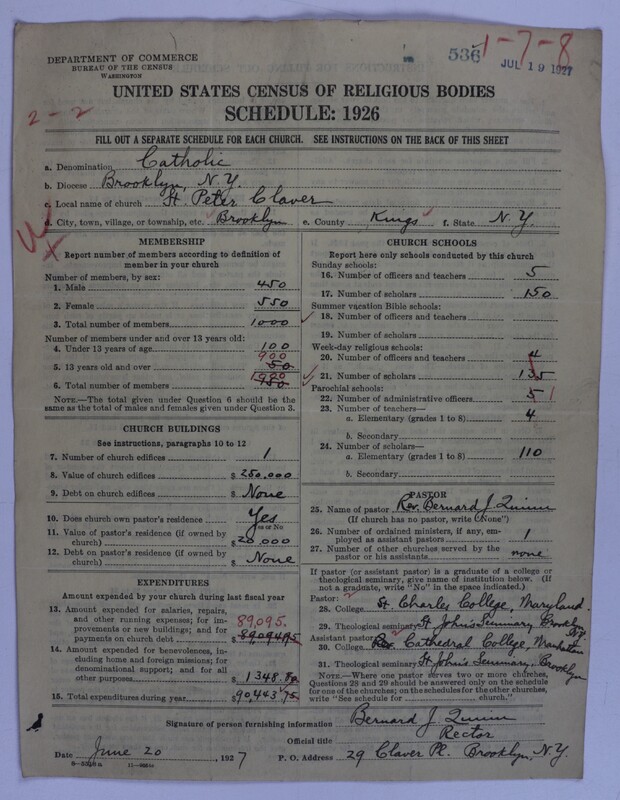 536 1-7-8
JUL 19 1927
DEPARTMENT OF COMMERCE
BUREAU OF THE CENSUS
WASHINGTON
2-2
UNITED STATES CENSUS OF RELIGIOUS BODIES
SCHEDULE: 1926
FILL OUT A SEPARATE SCHEDULE FOR EACH CHURCH. SEE INSTRUCTIONS ON THE BACK OF THIS SHEET
a. Denomination Catholic
b. Diocese Brooklyn, N.Y.
c. Local name of church St. Peter Claver
d. City, town, village, or township, etc. Brooklyn e. County Kings f. State N.Y.
MEMBERSHIP
Report number of members according to definition of
member in your church
Number of members, by sex:
1. Male 450
2. Female 550
3. Total number of members 1000
Number of members under and over 13 years old:
4. Under 13 years of age 100
900
5. 13 years old and over
1000
6. Total number of members
NOTE.—The total given under Question 6 should be the
same as the total of males and females given under Question 3.
CHURCH BUILDINGS
See instructions, paragraphs 10 to 12
7. Number of church edifices 1
8. Value of church edifices $ 250,000
9. Debt on church edifices $ None
10. Does church own pastor's residence Yes
Yes or No
11. Value of pastor's residence (if owned by
church) $ 20,000
12. Debt on pastor's residence (if owned by
church) $ None
EXPENDITURES
Amount expended by your church during last fiscal year
13. Amount expended for salaries, repairs,
and other running expenses; for im-
provements or new buildings; and for 89,095.
payments on church debt $ 89,094.95
14. Amount expended for benevolences,
including home and foreign missions; for
denominational support; and for all
other purposes $ 1348.80
15. Total expenditures during year $ 90,443.75
CHURCH SCHOOLS
Report here only schools conducted by this church
Sunday schools:
16. Number of officers and teachers 5
17. Number of scholars 150
Summer vacation Bible schools:
18. Number of officers and teachers
19. Number of scholars
Week-day religious schools:
20. Number of officers and teachers 4
21. Number of scholars 135
Parochial schools:
22. Number of administrative officers 5 1
23. Number of teachers—
a. Elementary (grades 1 to 8) 4
b. Secondary
24. Number of scholars—
a. Elementary (grades 1 to 8) 110
b. Secondary
PASTOR
25. Name of pastor Rev. Bernard J. Quinn
(If church has no pastor, write "None")
26. Number of ordained ministers, if any, em-
ployed as assistant pastors 1
27. Number of other churches served by the
pastor or his assistants none
If pastor (or assistant pastor) is a graduate of a college or
theological seminary, give name of institution below. (If
not a graduate, write "No" in the space indicated.)
Pastor: 2
28. College St. Charles College, Maryland.
29. Theological seminary St. John's Seminary, Brooklyn N.Y.
Assistant pastor: 2
30. College Cathedral College, Manhattan
31. Theological seminary St. John's Seminary, Brooklyn
NOTE.—Where one pastor serves two or more churches,
Questions 28 and 29 should be answered only on the schedule
for one of the churches; on the schedules for the other churches,
write "See schedule for church."
Signature of person furnishing information Bernard J. Quinn
Official title Rector
Date June 20, 1927 P. O. Address 29 Claver Pl. Brooklyn, N.Y.